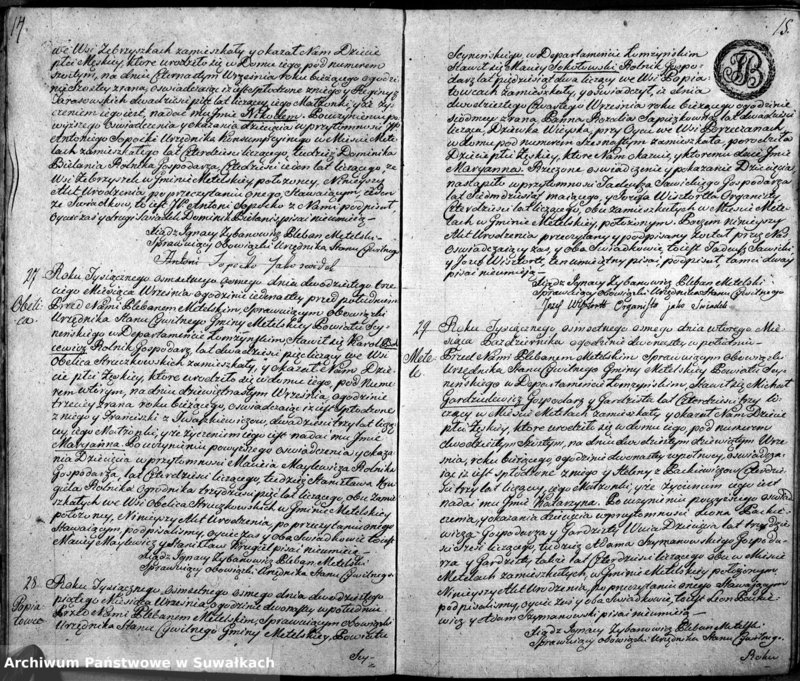 14.
we Wsi Zebrzyszkach zamieszkały y okazał Nam Dziecie
płci Męskiey, które urodziło się w Domu iego, pod numerem
szóstym, na dniu Czternastym Września roku bieżącego ogodzi
nie szostey zrana, oświadczaiąc iż iest spłodzone zniego y Agniszy z
Tarasowskich dwadzieścia pięć lat liczącey iego Małżonki, y że ży
czeniem iego iest, nadać mu Jmie Nikodem. Po uczynieniu po
wyższego oświadczenia, y okazania dziecięcia w przytomności JPa
Antoniego Sopoćki Urzędnika Konsumpcyinego w Mieście Me
telach zamieszkałego lat Czterdzieści liczącego, tudzież Dominika
Bielania Rolnika Gospodarza, Czterdzieści ieden lat liczącego, ze
Wsi Zebrzyszek w Gminie Metelskiey położoney, Ninieyszy
Akt Urodzenia po przeczytaniu onego Stawaiącym, ieden
ze Świadków, to iest JPn Antoni Sopocko z Nami podpisał
Oyciec zaś y drugi Świadek Dominik Bielanis pisać nieumieią
Xiądz Jgnacy Zybanowicz Pleban Metelski
Sprawuiący Obowiązki Urzędnika Stanu Cywilnego
Antoni Sopocko Jako swiadek
27.
Obeli
ca
Roku Tysiącznego osmsetnego osmego, dnia dwudziestego trze
ciego Miesiąca Września ogodzinie iedenastey przed południem
Przed Nami Plebanem Metelskim, Sprawuiącym Obowiązki
Urzędnika Stanu Cywilnego Gminy Metelskiey Powiatu Sey
neńskiego w Departamencie Łomżyńskim Stawił się Karol Bud
kiewicz Rolnik Gospodarz, lat dwadzieścia pięć liczący we Wsi
Obelica Struczkowskich zamieszkały, y okazał Nam Dzie
cie płci Żeńskiey, które urodziło się w domu iego, pod Nume
rem wtorym, na dniu dziewiętnastym Września, ogodzinie
trzeciey zrana roku bieżącego, oświadczaiąc iż iest spłodzone
z niego y Franciszki z Suwałkiewiczow, dwadzieścia trzy lat liczą
cey iego Małżonki, y że życzeniem iego iest nadać mu Jmie
Maryanna. Po uczynieniu powyższego oświadczenia y okaza
nia Dziecięcia w przytomności Macieia Maylewicza Rolnika
Gospodarza, lat Czterdzieści liczącego, tudzież Stanisława Kru
giela Rolnika Ogrodnika trzydzieści pięć lat liczącego, obu zamie
szkałych we Wsi Obelica Struczkowskich w Gminie Metelskiey
położoney, Ninieyszy Akt Urodzenia, po przeczytaniu onego
Stawaiącym, podpisaliśmy, oyciec zaś y oba Świadkowie to iest
Maciey Maylewicz y Stanisław Krugiel pisać nieumieią
Xiądz Jgnacy Zybanowicz Pleban Metelski
Sprawuiący Obowiązki Urzędnika Stanu Cywilnego
28.
Popia
towce
Roku Tysiącznego osmsetnego osmego dnia dwudziestego
piątego Miesiąca Września ogodzinie dwonastey w południe
Przed Nami Plebanem Metelskim, Sprawuiącym Obowiązki
Urzędnika Stanu Cywilnego Gminy Metelskiey, Powiatu
Sey
15.
Seyneńskiego, w Departamencie Łomżyńskim
Stawił się Maciey Sokołowski Rolnik Gospo
darz, lat pięćdziesiąt dwa liczący we Wsi Popia
towcach zamieszkały, y oświadczył, iż dnia
dwudziestego Czwartego Września roku bieżącego ogodzinie
siódmey zrana, Panna Rozalia Sapieżkowna, lat dwadzieścia
licząca, Dziewka Wieyska, przy Oycu we Wsi Borzezanach
w domu pod numerem Szesnastym zamieszkała, porodziła
Dziecie płci Żeńskiey, które Nam okazuie, y któremu daie Jmie
Maryanna. Rzeczone oświadczenie y pokazanie Dziecięcia,
nastąpiło w przytomności Tadeusza Sawickiego Gospodarza
lat Siedmdziesiąt maiącego, y Jozefa Wisztortta Organisty
Czterdzieści lat liczącego, obu zamieszkałych w Mieście Mete
lach w Gminie Metelskiey, położonym. Poczem ninieyszy
Akt Urodzenia przeczytany y podpisany został przez Nas
Oświadczaiący zaś, y oba Świadkowie to iest Tadeusz Sawicki
y Jozef Wisztortt, ten umieiętny pisać podpisał, tamci dway
pisać nieumieią
Xiądz Jgnacy Zybanowicz Pleban Metelski
Sprawuiący Obowiązki Urzędnika Stanu Cywilnego
Jozef Wisztortt Organista jako Swiadek
29.
Mete
le
Roku Tysiącznego osmsetnego osmego dnia wtorego Mie
siąca Października ogodzinie dwonastey w południe
Przed Nami Plebanem Metelskim Sprawuiącym Obowiązki
Urzędnika Stanu Cywilnego Gminy Metelskiey Powiatu Sey
neńskiego w Departamencie Łomżyńskim, Stawił się Michał
Gardziulewicz Gospodarz y Gardzista lat Czterdzieści trzy li
czący w Mieście Metelach zamieszkały y okazał Nam Dziecie
płci Żeńskiey, które urodziło się w domu iego, pod numerem
dwudziestym szóstym, na dniu dwudziestym dziewiątym Wrze
śnia, roku bieżącego ogodzinie dwonastey w północy, oświadcza
iąc iż iest spłodzone z niego y Heleny z Backiewiczow Czterdzie
ści trzy lat liczącey iego Małżonki, y że życzeniem iego iest
nadać mu Jmie Katarzyna. Po uczynieniu powyższego oświad
czenia, y okazania dziecięcia w przytomności Leona Backie
wicza Gospodarza y Gardzisty Wuia Dziecięcia lat trzydzie
ści sześć liczącego, tudzież Adama Szymanowskiego Gospoda
rza y Gardzisty, także lat Czterdzieści liczącego obu w Mieście
Metelach zamieszkałych, w Gminie Metelskiey położonym
Ninieyszy Akt Urodzenia, po przeczytaniu onego Stawaiącym
podpisaliśmy, oyciec zaś y oba Świadkowie, to iest Leon Backie
wicz y Adam Szymanowski pisać nieumieią
Xiądz Jgnacy Zybanowicz Pleban Metelski
Sprawuiący Obowiązki Urzędnika Stanu Cywilnego.
Roku
Archiwum Państwowe w Suwałkach